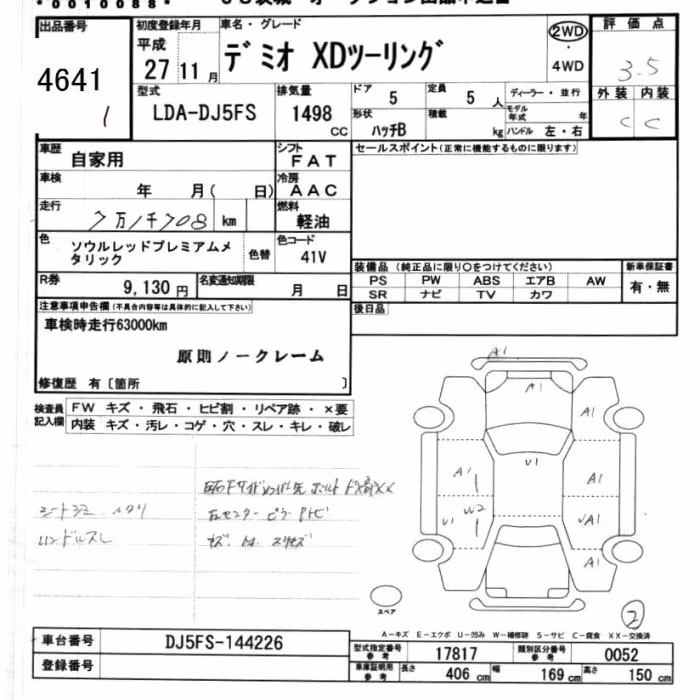 *0010088*
出品番号
4641
1
初度登録年月
平成
27 11月
車名・グレード
デミオ XDツーリング
2WD
・
4WD
評価点
3.5
外装 内装
C C
型式
LDA-DJ5FS
排気量
1498
CC
ドア
5
定員
5 人
形状
ハッチB
積載
kg
ディーラー・並行
モデル年式 年
ハンドル 左・右
車歴
自家用
シフト
FAT
車検
年 月( 日)
冷房
AAC
走行
7万1千708 km
燃料
軽油
色
ソウルレッドプレミアムメ
タリック
色替
色コード
41V
R券
9,130 円
名変通知期限
月 日
セールスポイント(正常に機能するものに限ります)
装備品 (純正品に限り○をつけてください)
新車保証書
PS PW ABS エアB AW
SR ナビ TV カワ
有・無
後日品
注意事項申告欄(不具合内容等は具体的に記入して下さい)
車検時走行63000km
原則ノークレーム
修復歴 有〔箇所 〕
検査員
記入欄
FW キズ・飛石・ヒビ割・リペア跡・×要
内装 キズ・汚レ・コゲ・穴・スレ・キレ・破レ
ハンドルスレ
A1
A1
A1
A1
A1
U1
U1
W2
A1
スペア
2
A-キズ E-エクボ U-凹み W-補修跡 S-サビ C-腐食 XX-交換済
車台番号
DJ5FS-144226
登録番号
型式指定番号
参考
17817
類別区分番号
参考
0052
車庫証明用
参考
長さ 406 cm 幅 169 cm 高さ 150 cm